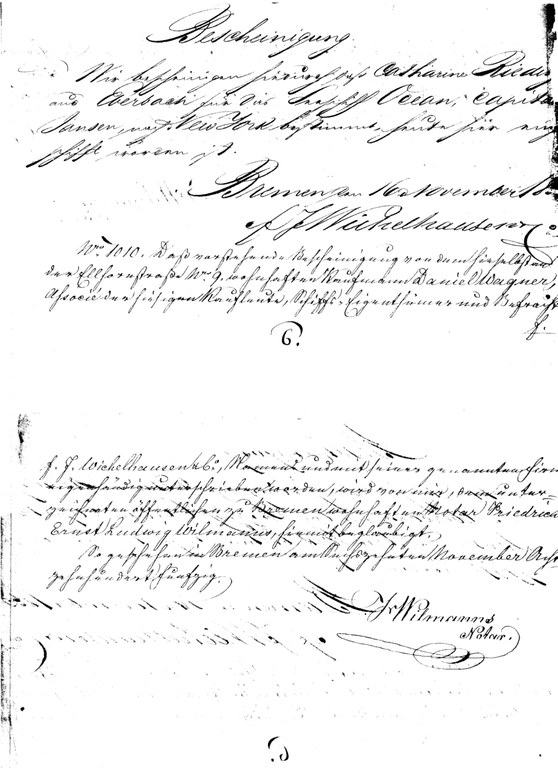 Bescheinigung.
Wir bescheinigen hierdurch daß Catharine Rieder
aus Eberbach für das Seeschiff Ocean, Capitän
Jansen, nach New York bestimmt, heute hier einge-
schifft worden ist.
Bremen den 16 November 18
f J Wichelhausen & Co
Nro 1010. Daß vorstehende Bescheinigung von dem hieselbst an
der Ellhornstraße Nro 9. wohnhaften Kaufmann Daniel Wagner,
Associé der hiesigen Kaufleute, Schiffs-Eigenthümer und Befracht
f.
6.
f. J. Wichelhausen & Co., Namens und mit seiner genannten Firma
eigenhändig unterschrieben worden, wird von mir, dem unter-
zeichneten öffentlichen zu Bremen wohnhaften Notar Friedrich
Ernst Ludwig Wilmanns, hiemit beglaubigt.
So geschehen in Bremen am Sechszehnten November Acht
zehnhundert fünfzig.
Fr Wilmanns
Notar.